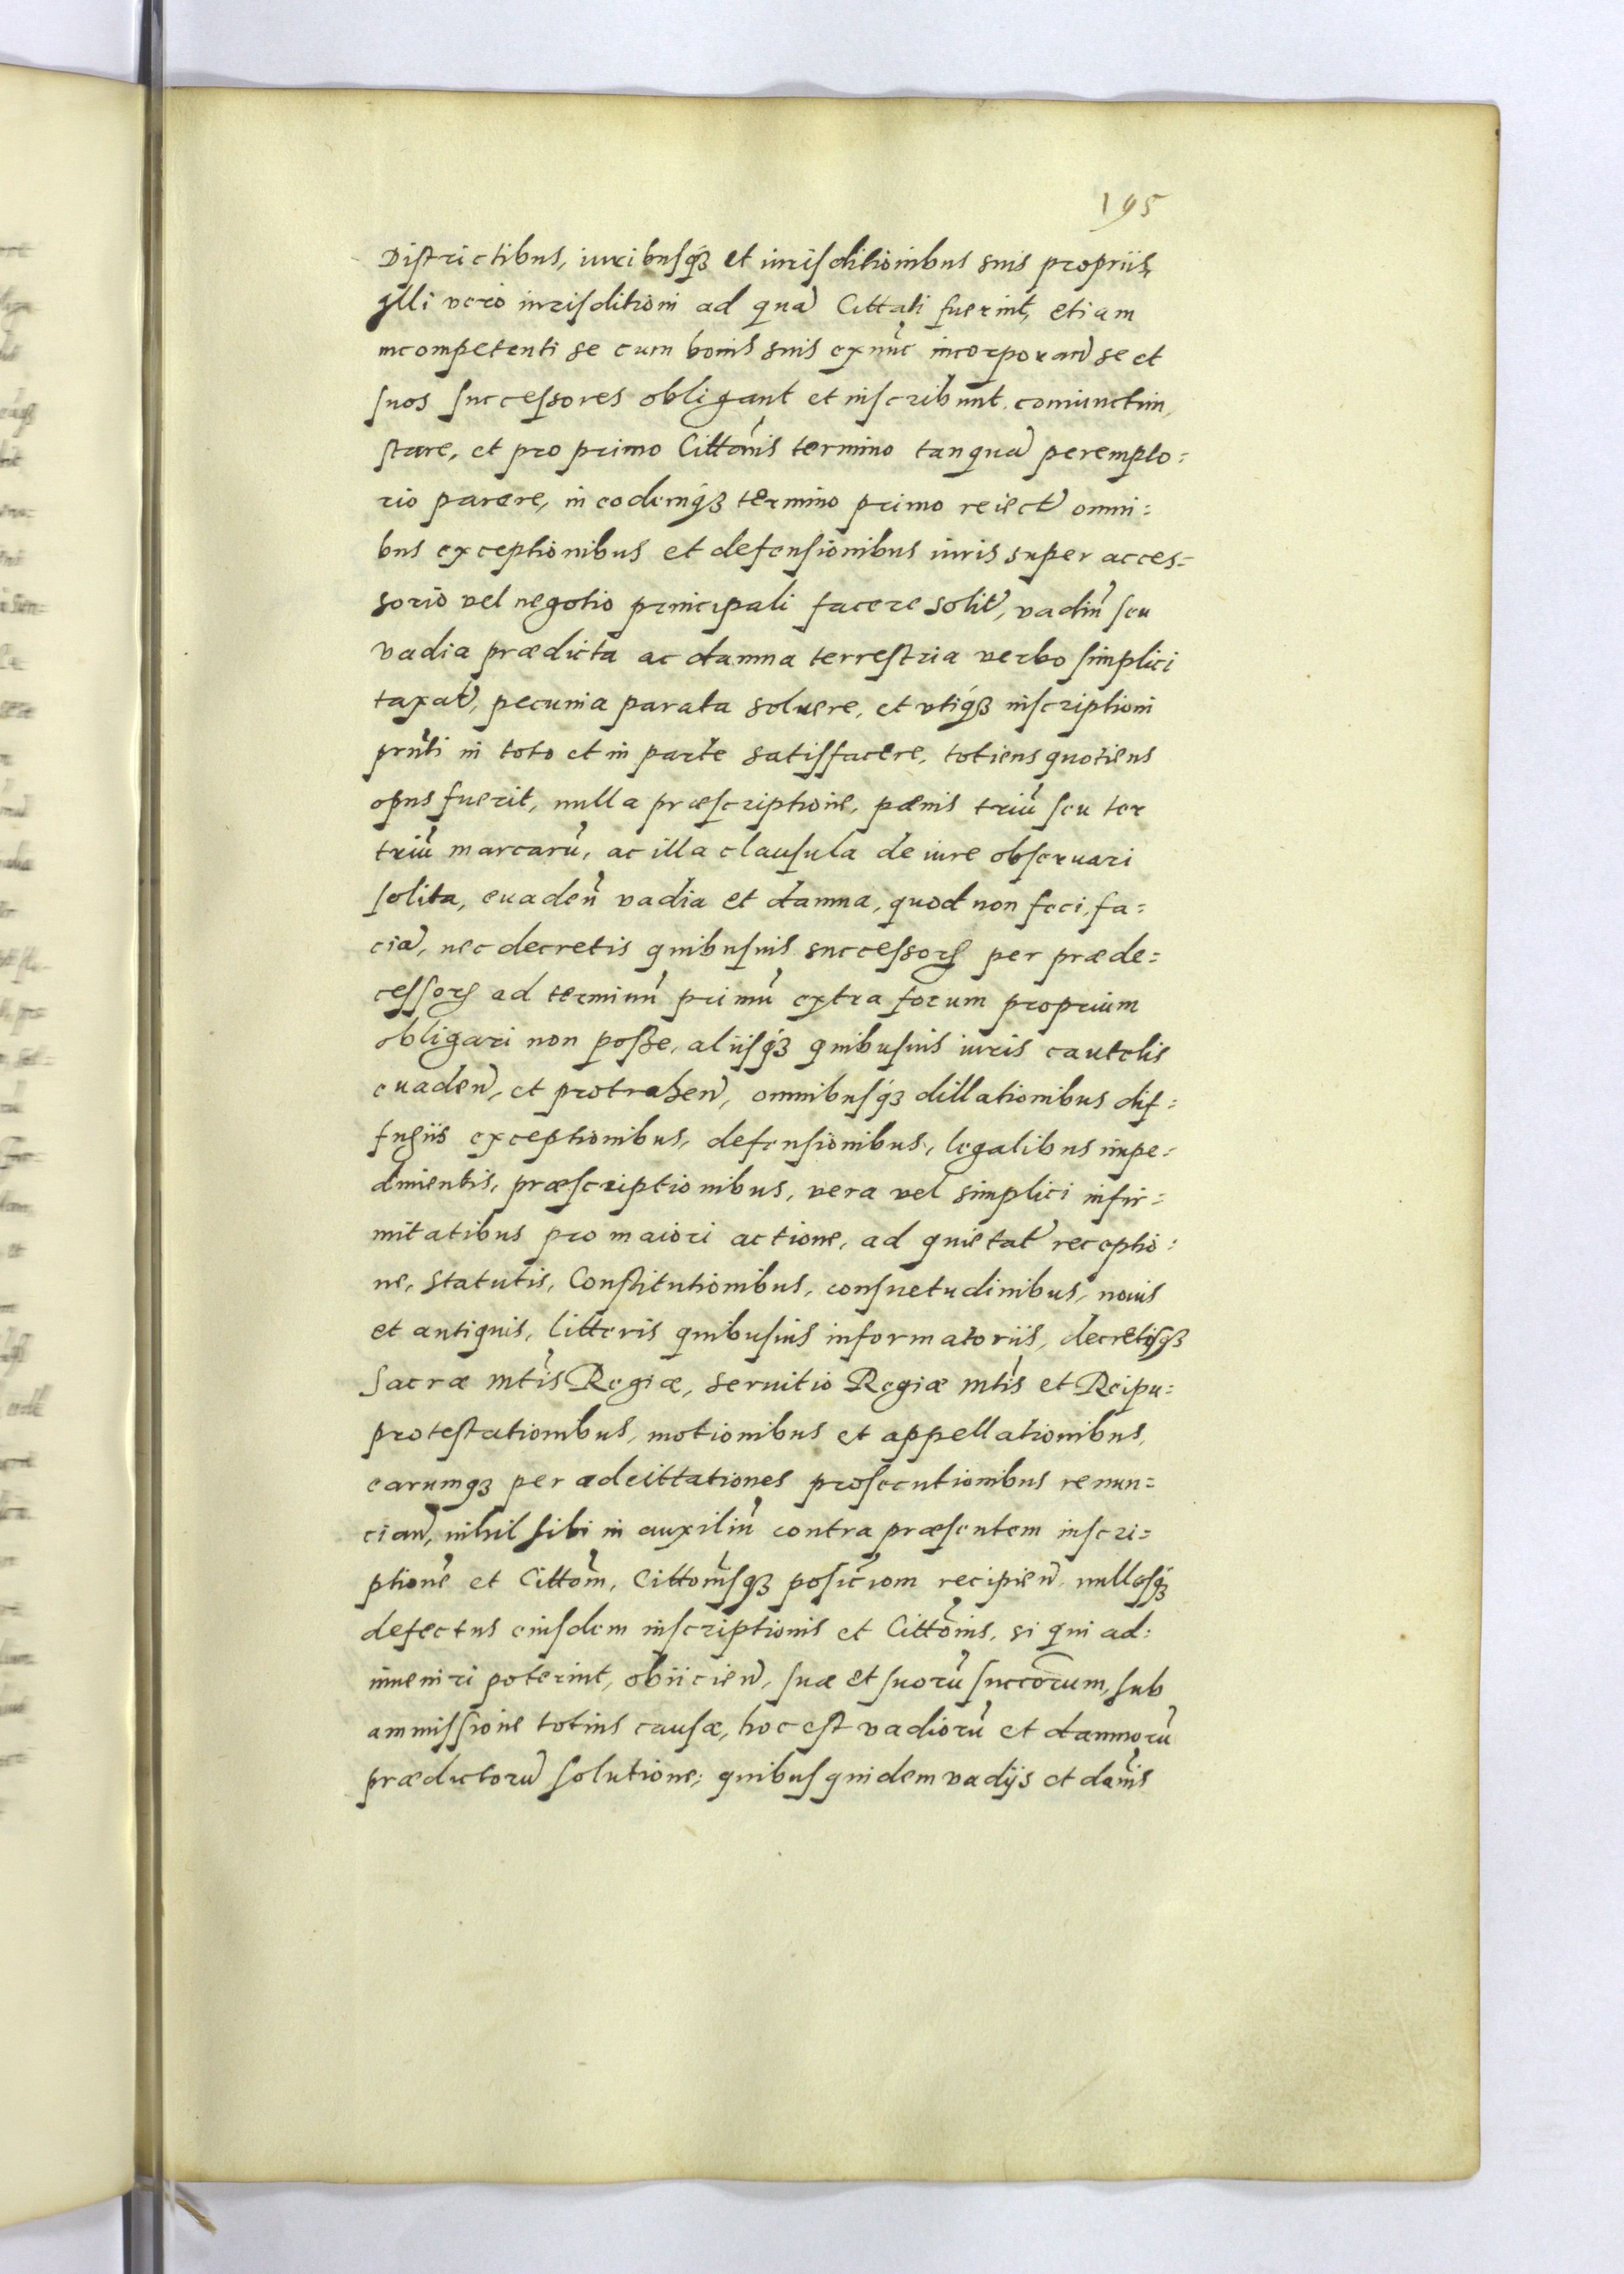 195
Districtibus, iuribusq́ꝫ et iurisditionibus suis propriis,
illi vero iurisditioni ad quã Cittati fuerint, etiam
incompetenti se cum bonis suis exnũc incorporañ se et
suos successores obligant et inscribunt, coniunctim,
stare, et pro primo Cittõnis termino tanquã perempto=
rio parere, in eodemq́ꝫ termino primo reiect̃ omni=
bus exceptionibus et defensionibus iuris super acces=
sorio vel negotio principali facere solit̃, vadiũ seu
vadia prædicta ac damna terrestria verbo simplici
taxat̃, pecunia parata soluere, et vtiq́ꝫ inscriptioni
pñti in toto et in parte satisfacere, totiens quotiens
opus fuerit, nulla præscriptione, pœnis triũ seu ter
triũ marcarũ, ac illa clausula de iure obseruari
solita, euadeñ vadia et damna, quod non feci, fa=
ciã, nec decretis quibusuis successorꝭ per præde=
cessorꝭ ad terminũ primũ extra forum proprium
obligari non posse, aliisq́ꝫ quibusuis iuris cautelis
euadeñ, et protraheñ, omnibusq́ꝫ dillationibus dif=
fugiis exceptionibus, defensionibus, legalibus impe=
dimentis, præscriptionibus, vera vel simplici infir=
mitatibus pro maiori actione, ad quietat̃ receptio=
ne, statutis, Constitutionibus, consuetudinibus, nouis
et antiquis, litteris quibusuis informatoriis, decretisqꝫ
Sacræ Mt̃is Regiæ, seruitio Regiæ Mt̃is et Reipu=
protestationibus, motionibus et appellationibus,
earumqꝫ per adcittationes prosecutionibus renun=
ciañ, nihil sibi in auxiliũ contra præsentem inscri=
ptionẽ et Cittõm, Cittõnisqꝫ posic̃iom recipieñ, nullosq́ꝫ
defectus eiusdem inscriptionis et Cittõnis, si qui ad=
inueniri poterint, obiicieñ, suæ et suorũ succ̃orum, sub
ammissione totius causæ, hoc est vadiorũ et damnorũ
prædictorũ solutione; quibus quidem vadijs et dam̃is